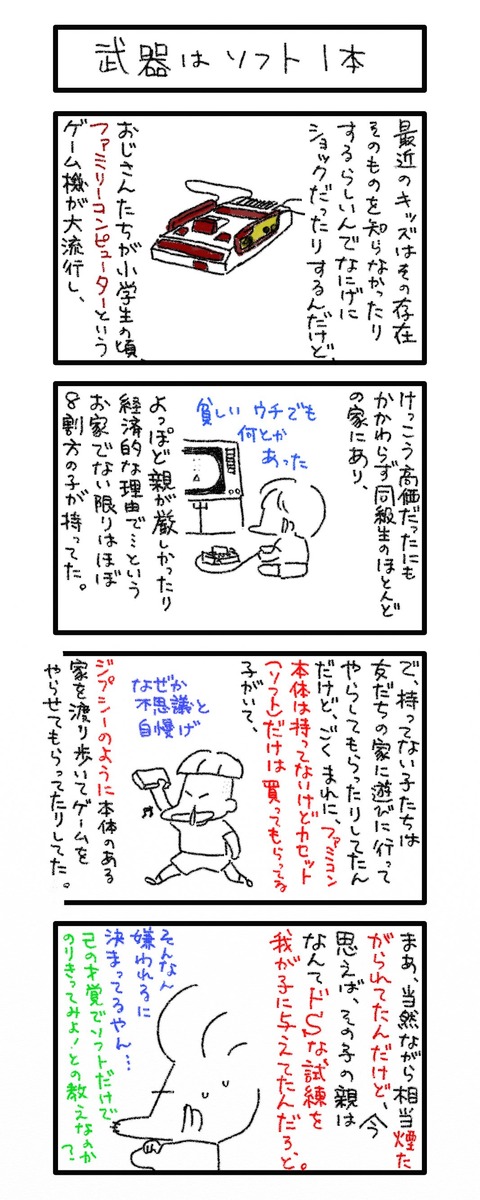 武器はソフト1本
最近のキッズはその存在
そのものを知らなかったり
するらしいんでなにげに
ショックだったりするんだけど、
おじさんたちが小学生の頃、
ファミリーコンピューターという
ゲーム機が大流行し、
けっこう高価だったにも
かかわらず同級生のほとんど
の家にあり、
貧しいウチでも
何とか
あった
よっぽど親が厳しかったり
経済的な理由で…という
お家でない限りはほぼ
8割方の子が持ってた。
で、持ってない子たちは
友だちの家に遊びに行って
やらしてもらったりしてたん
だけど、ごくまれに、ファミコン
本体は持ってないけどカセット
(ソフト)だけは買ってもらってる
子がいて、
なぜか
不思議と
自慢げ
ジプシーのように本体のある
家を渡り歩いてゲームを
やらせてもらってたりしてた。
まあ、当然ながら相当煙た
がられてたんだけど、今
思えば、その子の親は
なんてドSな試練を
我が子に与えてたんだろ、と。
そんなん
嫌われるに
決まってるやん…
己の才覚でソフトだけで
のりきってみよ!との教えなのか
?